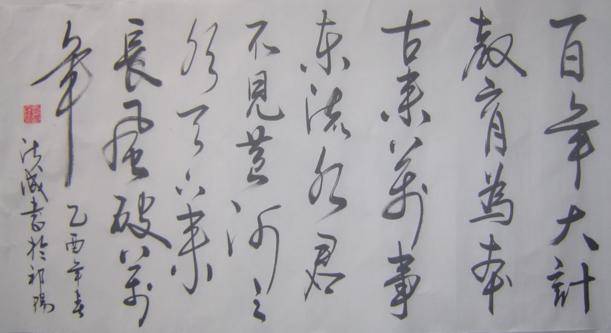 百年大計
教育為本
古来萬事
東流水君
不見黄河之
水天上来
長風破萬
年
乙酉年春
書於祁陽